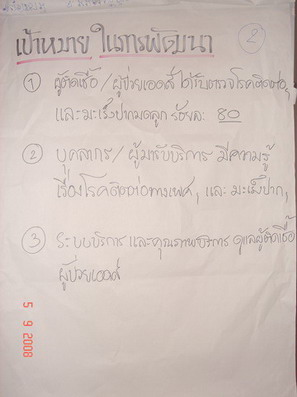 ②
เป้าหมาย ในการพัฒนา
① ผู้ติดเชื้อ / ผู้ป่วยเอดส์ ได้รับตรวจโรคติดต่อฯ
และมะเร็งปากมดลูก ร้อยละ 80
② บุคลากร / ผู้มารับบริการ มีความรู้
เรื่องโรคติดต่อทางเพศฯ และ มะเร็งปากฯ
③ ระบบบริการ และคุณภาพบริการ ดูแลผู้ติดเชื้อ
ผู้ป่วยเอดส์
5 9 2008